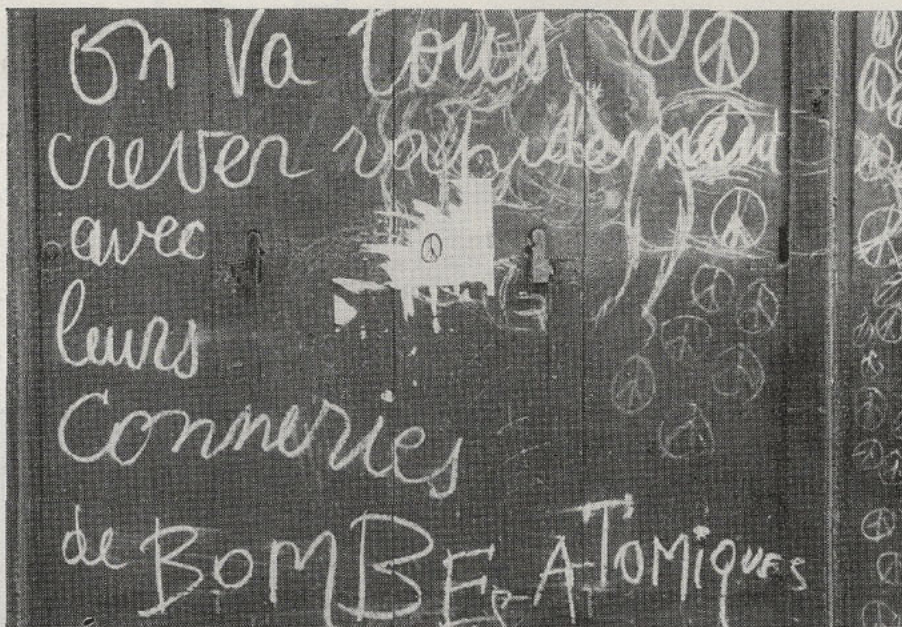 on va tous
crever rapidement
avec
leurs
Conneries
de BOMBES ATOMiQUES